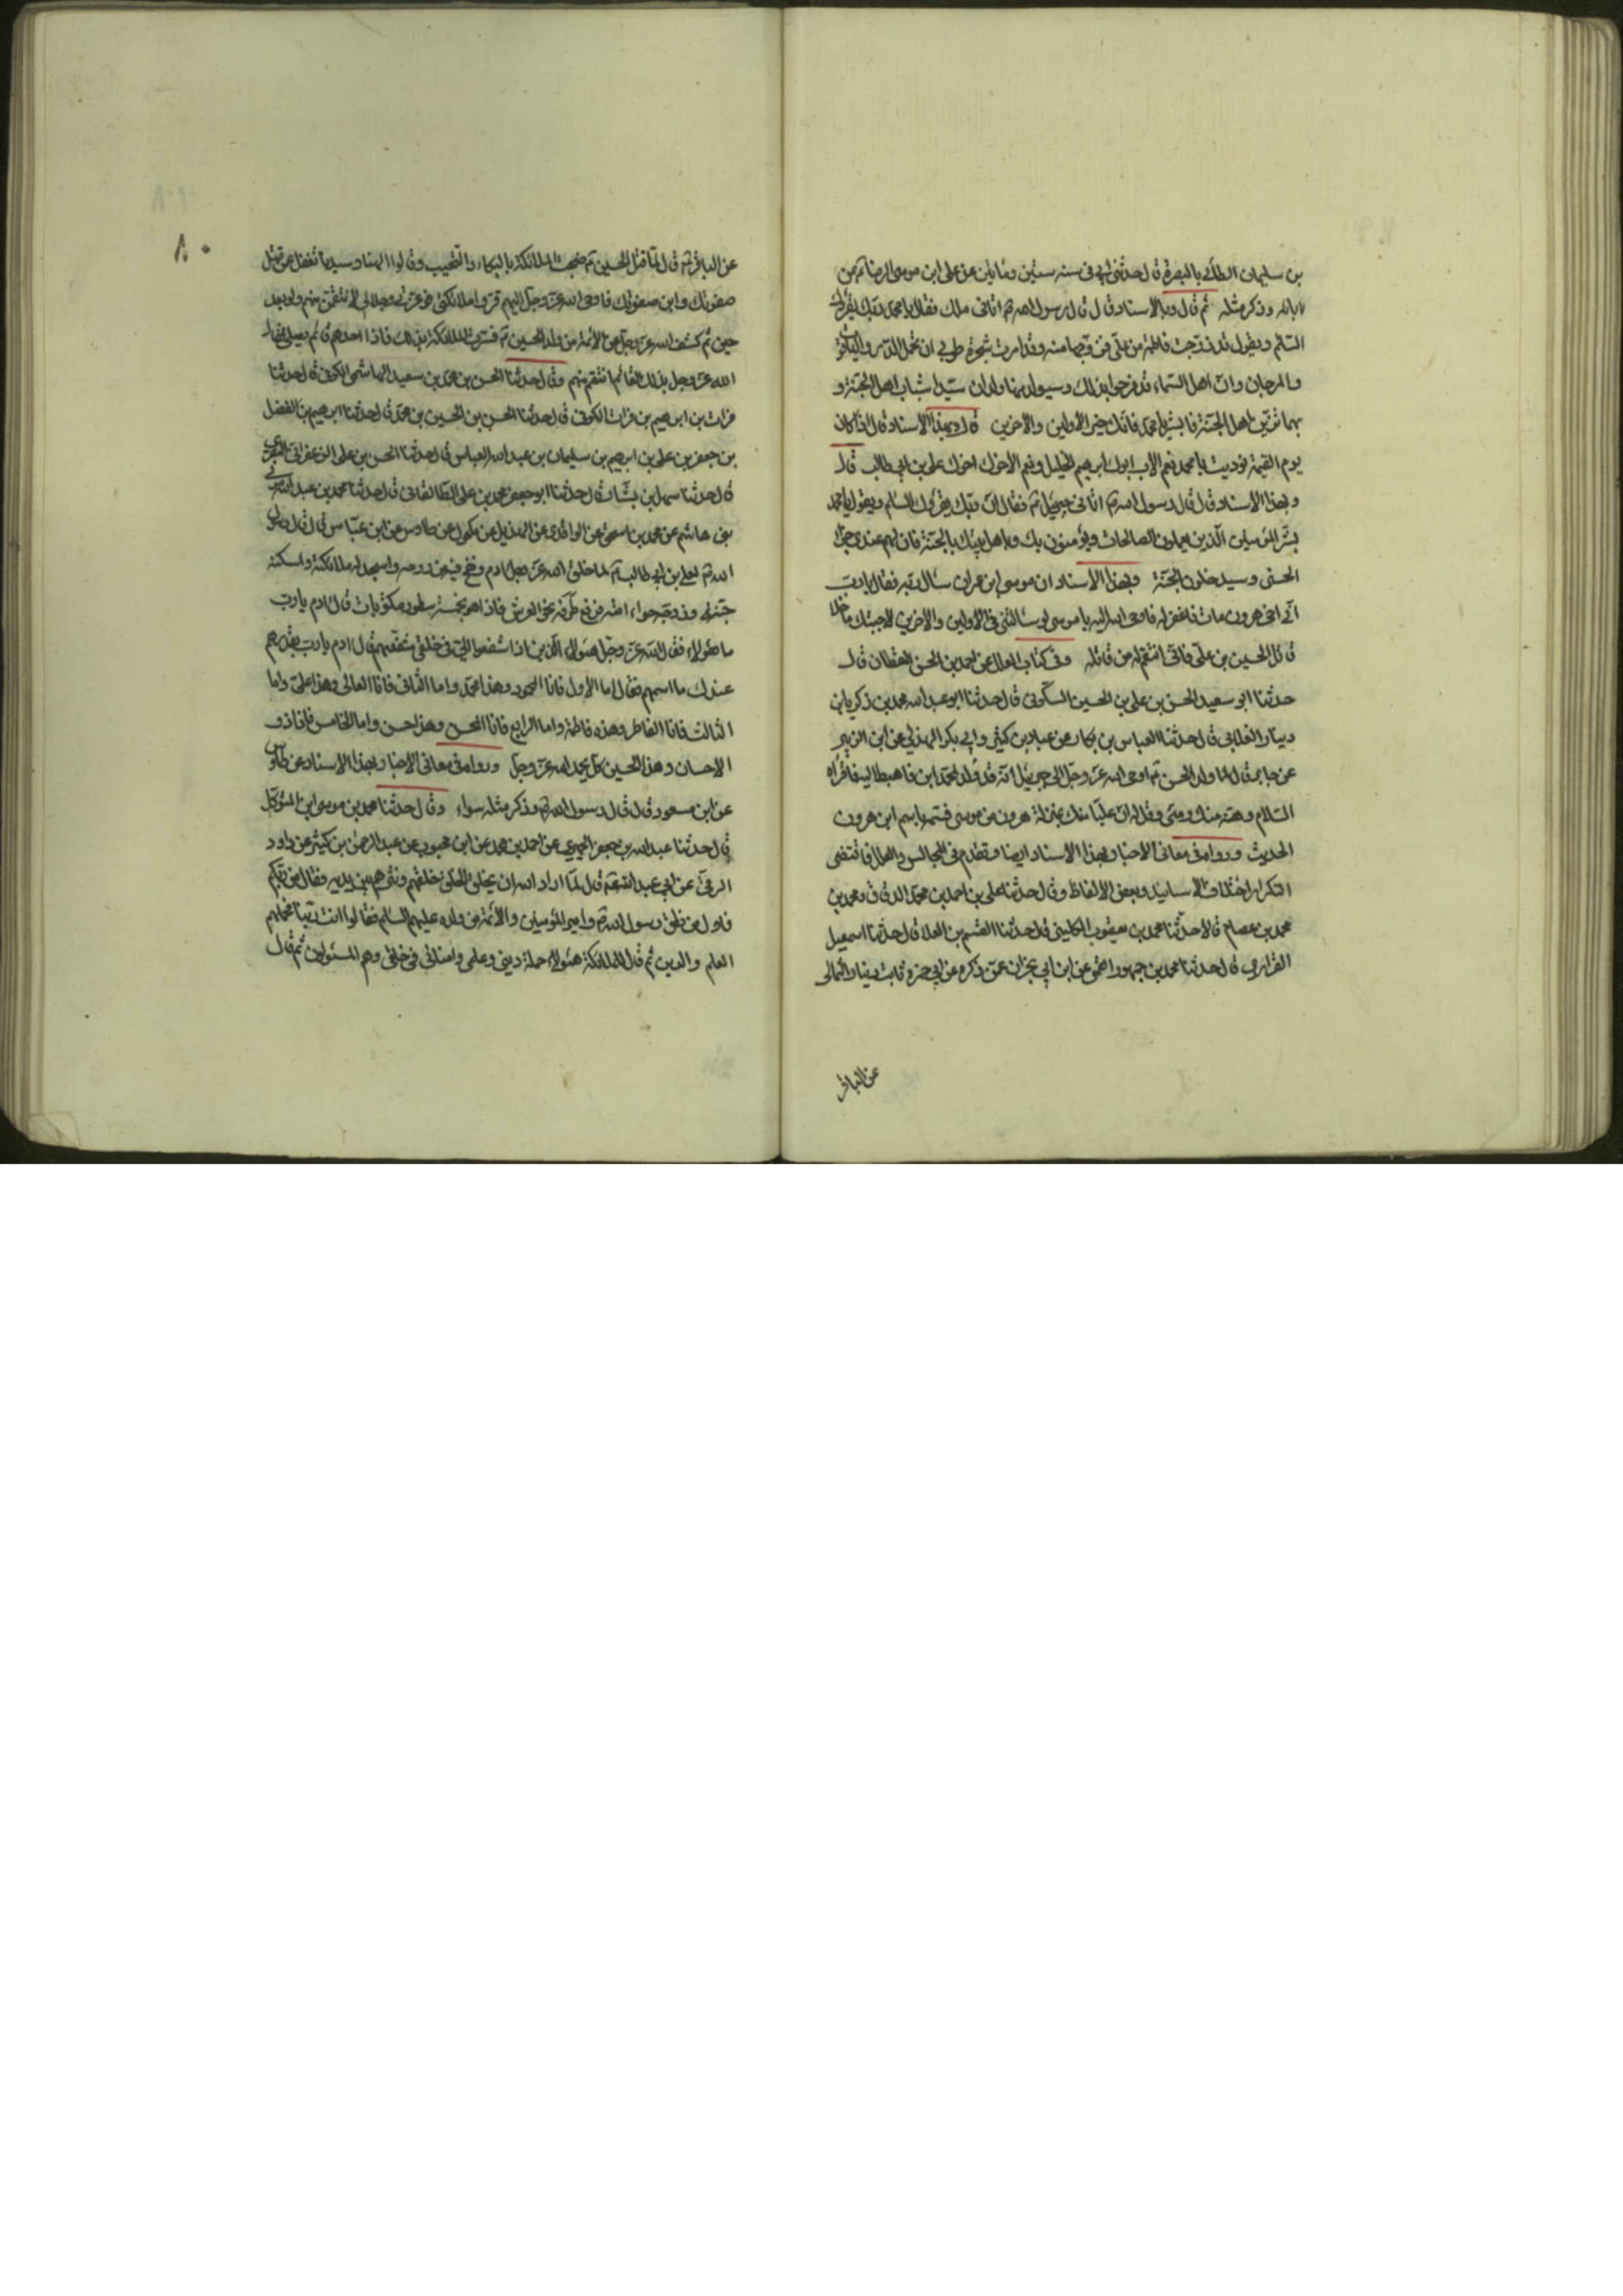 بن سليمان الطائي بالبصرة قال حدثني ابي في سنه ستين ومأتين عن علي ابن موسى الرضا عن
ابائه وذكر مثله ثم قال وبالاسناد قال قال رسول الله ص اتاني ملك فقال يا محمد ربك يقرئك
السلام ويقول قد زوجت فاطمة من علي فزوجها منه وقد امرت شجرة طوبى ان تحمل الدر والياقوت
والمرجان وان اهل السماء قد فرحوا بذلك وسيولد منهما ولدان سيدا شباب اهل الجنة و
بهما تزين اهل الجنة فابشر يا محمد فانك خير الأولين والاخرين قال وبهذا الاسناد قال اذا كان
يوم القيمة نوديت يا محمد نعم الاب ابوك ابرهيم الخليل ونعم الاخ اخوك علي بن ابي طالب قال
وبهذا الاسناد قال قال رسول الله ص اتاني جبرئيل ع فقال ان ربك يقرئك السلام ويقول يا محمد
بشر المؤمنين الذين يعملون الصالحات ويؤمنون بك وباهل بيتك بالجنة فان لهم عندي جزاء
الحسنى وسيدخلون الجنة وبهذا الاسناد ان موسى ابن عمران سأل ربه فقال يا رب
ان اخي هرون مات فاغفر له فاوحى الله اليه يا موسى لو سألتني في الاولين والاخرين لاجبتك ما خلا
قاتل الحسين بن علي فاني انتقم له من قاتله وفي كتاب العلل عن احمد بن الحسن القطان قال
حدثنا ابو سعيد الحسن بن علي بن الحسين السكوني قال حدثنا ابو عبد الله محمد بن زكريا بن
دينار الغلابي قال حدثنا العباس بن بكار عن عباد بن كثير وابي بكر الهذلي عن ابن الزبير
عن جابر قال لما ولد الحسن ع اوحى الله عز وجل الى جبرئيل انه قد ولد لمحمد ابن فاهبط اليه فاقرأه
السلام وهنه منك ومني وقل له ان عليا منك بمنزلة هرون من موسى فسمه باسم ابن هرون
الحديث ورواه في معاني الاخبار بهذا الاسناد ايضا وتقدم في المجالس والعلل ما اقتضى
التكرار اختلاف الاسانيد وبعض الالفاظ وقال حدثنا علي بن احمد بن محمد الدقاق ومحمد بن
محمد بن عصام قالا حدثنا محمد بن يعقوب الكليني قال حدثنا القسم بن العلا قال حدثنا اسمعيل
الفزاري قال حدثنا محمد بن جمهور العمي عن ابن ابي نجران عمن ذكره عن ابي حمزه ثابت بن دينار الثمالي
عن الباقر
٨٠
عن الباقر ع قال لما قتل الحسين ع ضجت الملائكة بالبكاء والنحيب وقالوا الهنا وسيدنا اتغفل عمن قتل
صفوتك وابن صفوتك فاوحى الله عز وجل اليهم قروا ملائكتي فوعزتي وجلالي لانتقمن منهم ولو بعد
حين ثم كشف الله عز وجل عن الأئمة من ولد الحسين ع فسرت الملائكة بذلك فاذا احدهم قائم يصلي فقال
الله عز وجل بذلك القائم انتقم منهم وقال حدثنا الحسن بن محمد بن سعيد الهاشمي الكوفي قال حدثنا
فرات بن ابرهيم بن فرات الكوفي قال حدثنا الحسن بن الحسين بن محمد قال حدثنا ابرهيم بن الفضل
بن جعفر بن علي بن ابرهيم بن سليمان بن عبد الله العباس قال حدثنا الحسن بن علي الزعفراني البصري
قال حدثنا سهل بن بشار قال حدثنا ابو جعفر محمد بن علي الطالقاني قال حدثنا محمد بن عبد الله مولى
بني هاشم عن محمد بن اسحق عن الواقدي عن الهذيل عن مكحول عن طاوس عن ابن عباس قال قال رسول
الله ص لعلي بن ابي طالب ع لما خلق الله عز وجل ادم ونفخ فيه من روحه واسجد له ملائكته واسكنه
جنته وزوجه حواء امته فرفع طرفه نحو العرش فاذا هو بخمسة سطور مكتوبات قال ادم يا رب
ما هؤلاء فقال الله عز وجل هؤلاء الذين اذا تشفعوا الي في خلقي شفعتهم قال ادم يا رب بقدرهم
عندك ما اسمهم فقال اما الاول فانا المحمود وهذا محمد واما الثاني فانا العالي وهذا علي واما
الثالث فانا الفاطر وهذه فاطمة واما الرابع فانا المحسن وهذا حسن واما الخامس فانا ذو
الاحسان وهذا الحسين كل يحمد الله عز وجل ورواه في معاني الاخبار بهذا الاسناد عن طاوس
عن ابن مسعود قال قال رسول الله ص وذكر مثله سواء وقال حدثنا محمد بن موسى ابن المتوكل
قال حدثنا عبد الله بن جعفر الحميري عن احمد بن محمد عن ابن محبوب عن عبد الرحمن بن كثير عن داود
الرقي عن ابي عبد الله ع قال لما اراد الله ان يخلق الخلق خلقهم ونثرهم بين يديه فقال من ربكم
فاول من نطق رسول الله ص وامير المؤمنين والأئمة من ولده عليهم السلام فقالوا انت ربنا فحملهم
العلم والدين ثم قال للملائكة هؤلاء حملة ديني وعلمي وامنائي في خلقي وهم المسئولون ثم قال